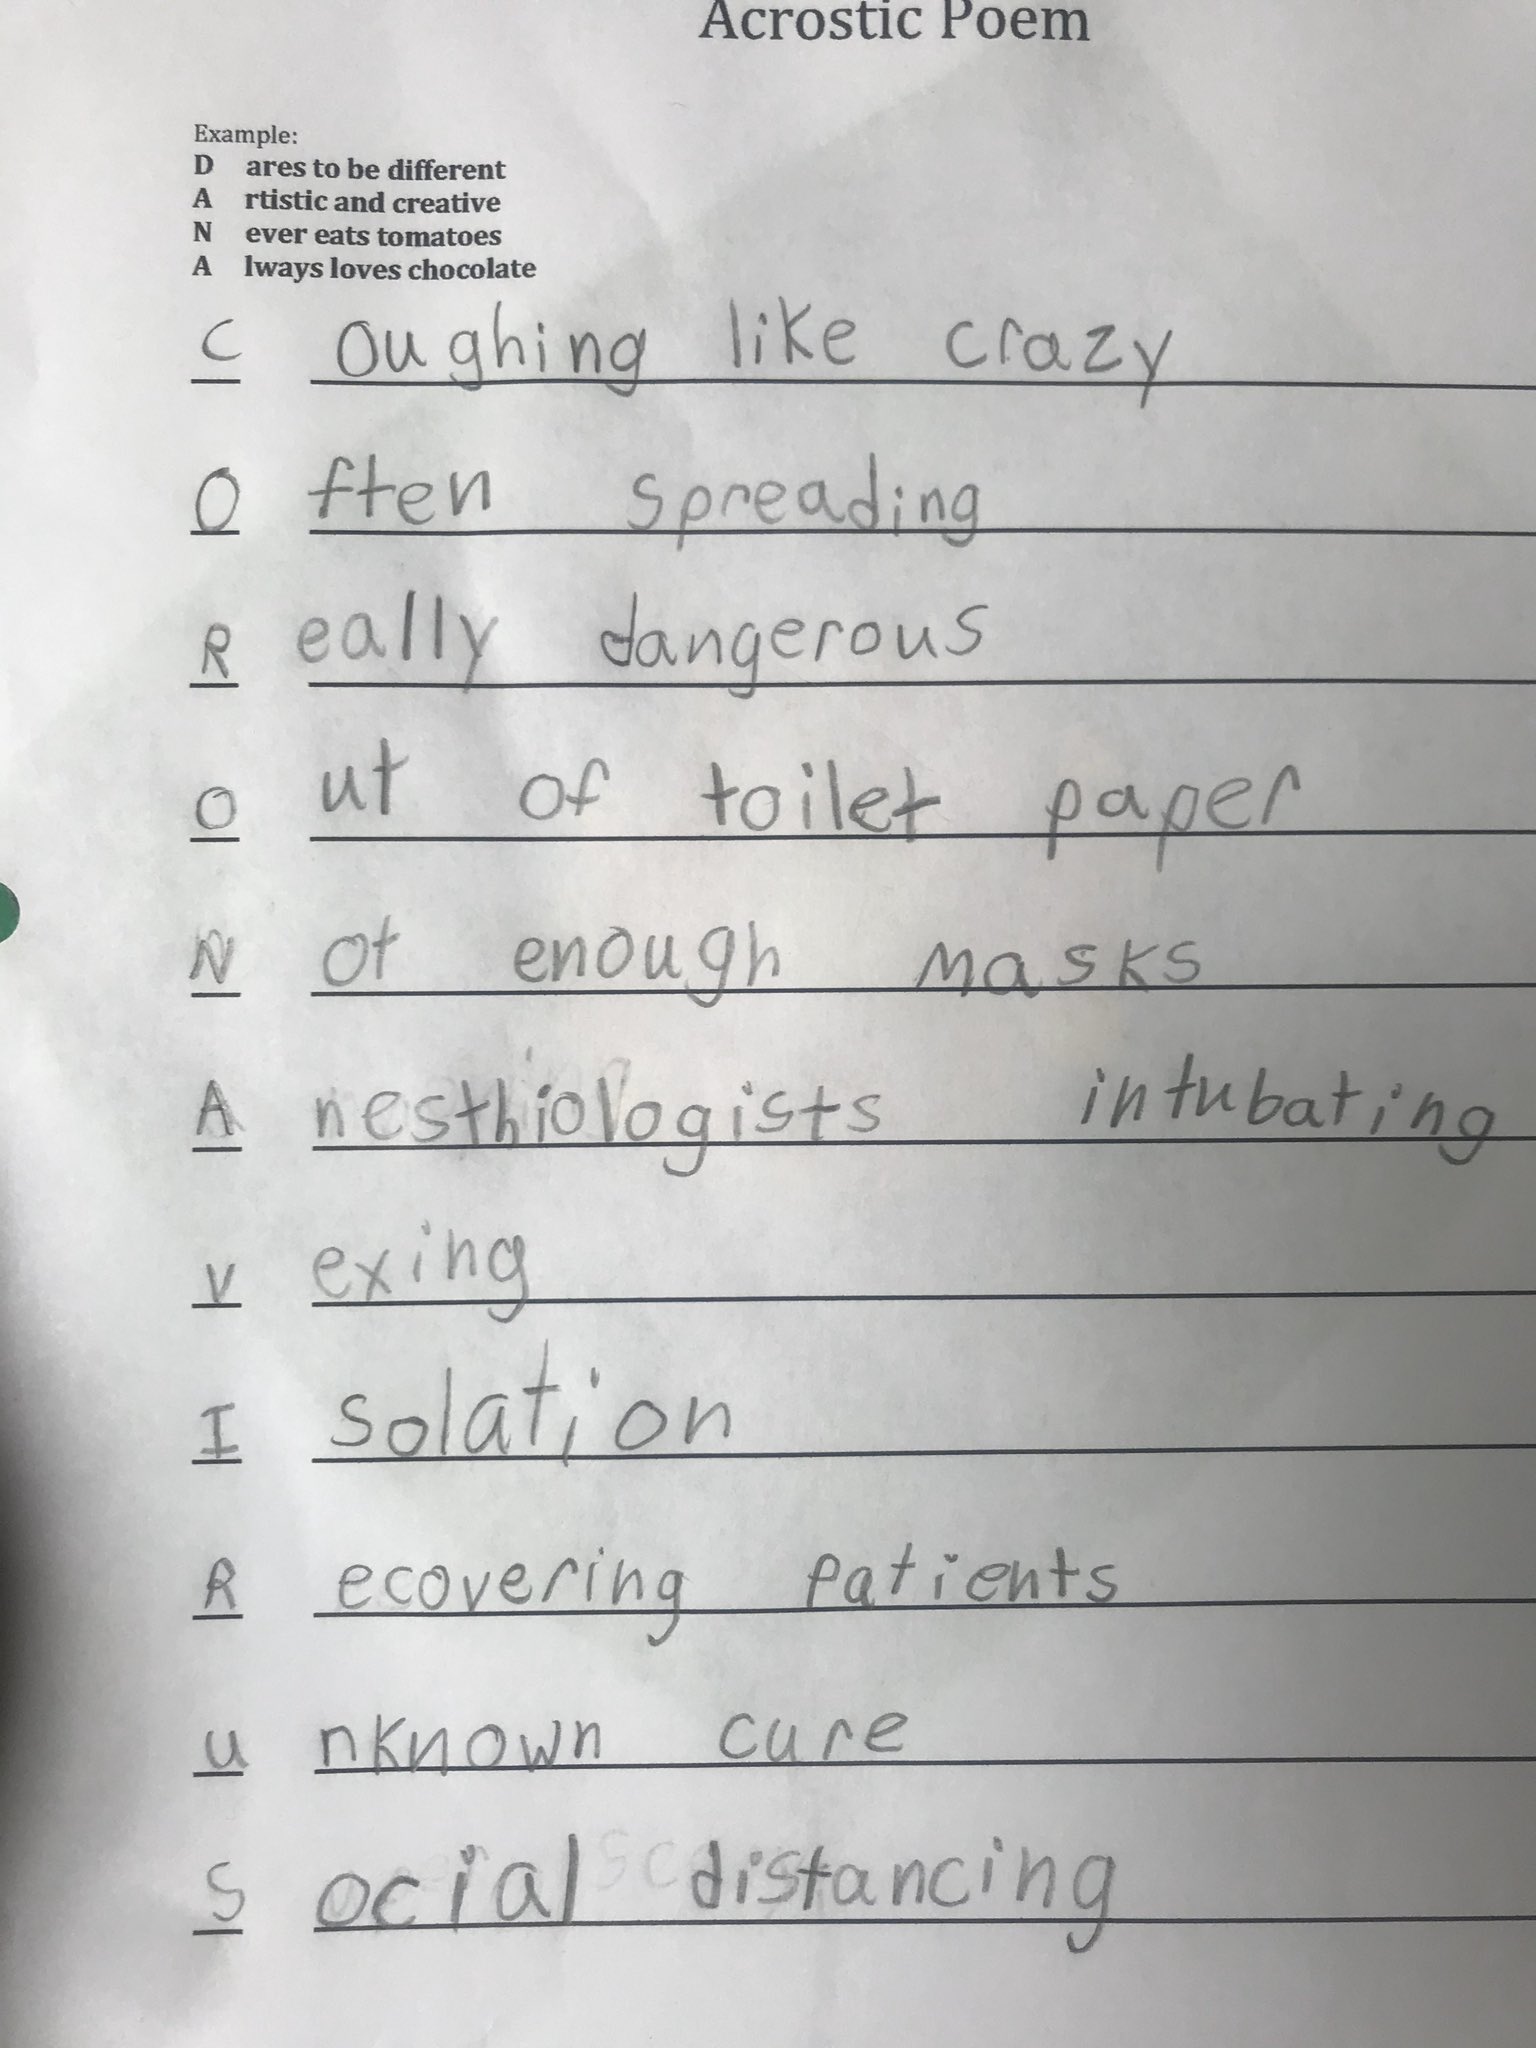 Acrostic Poem
Example:
D ares to be different
A rtistic and creative
N ever eats tomatoes
A lways loves chocolate
C oughing like crazy
O ften spreading
R eally dangerous
O ut of toilet paper
N ot enough masks
A nesthiologists intubating
V exing
I solation
R ecovering patients
u nknown cure
S ocial distancing